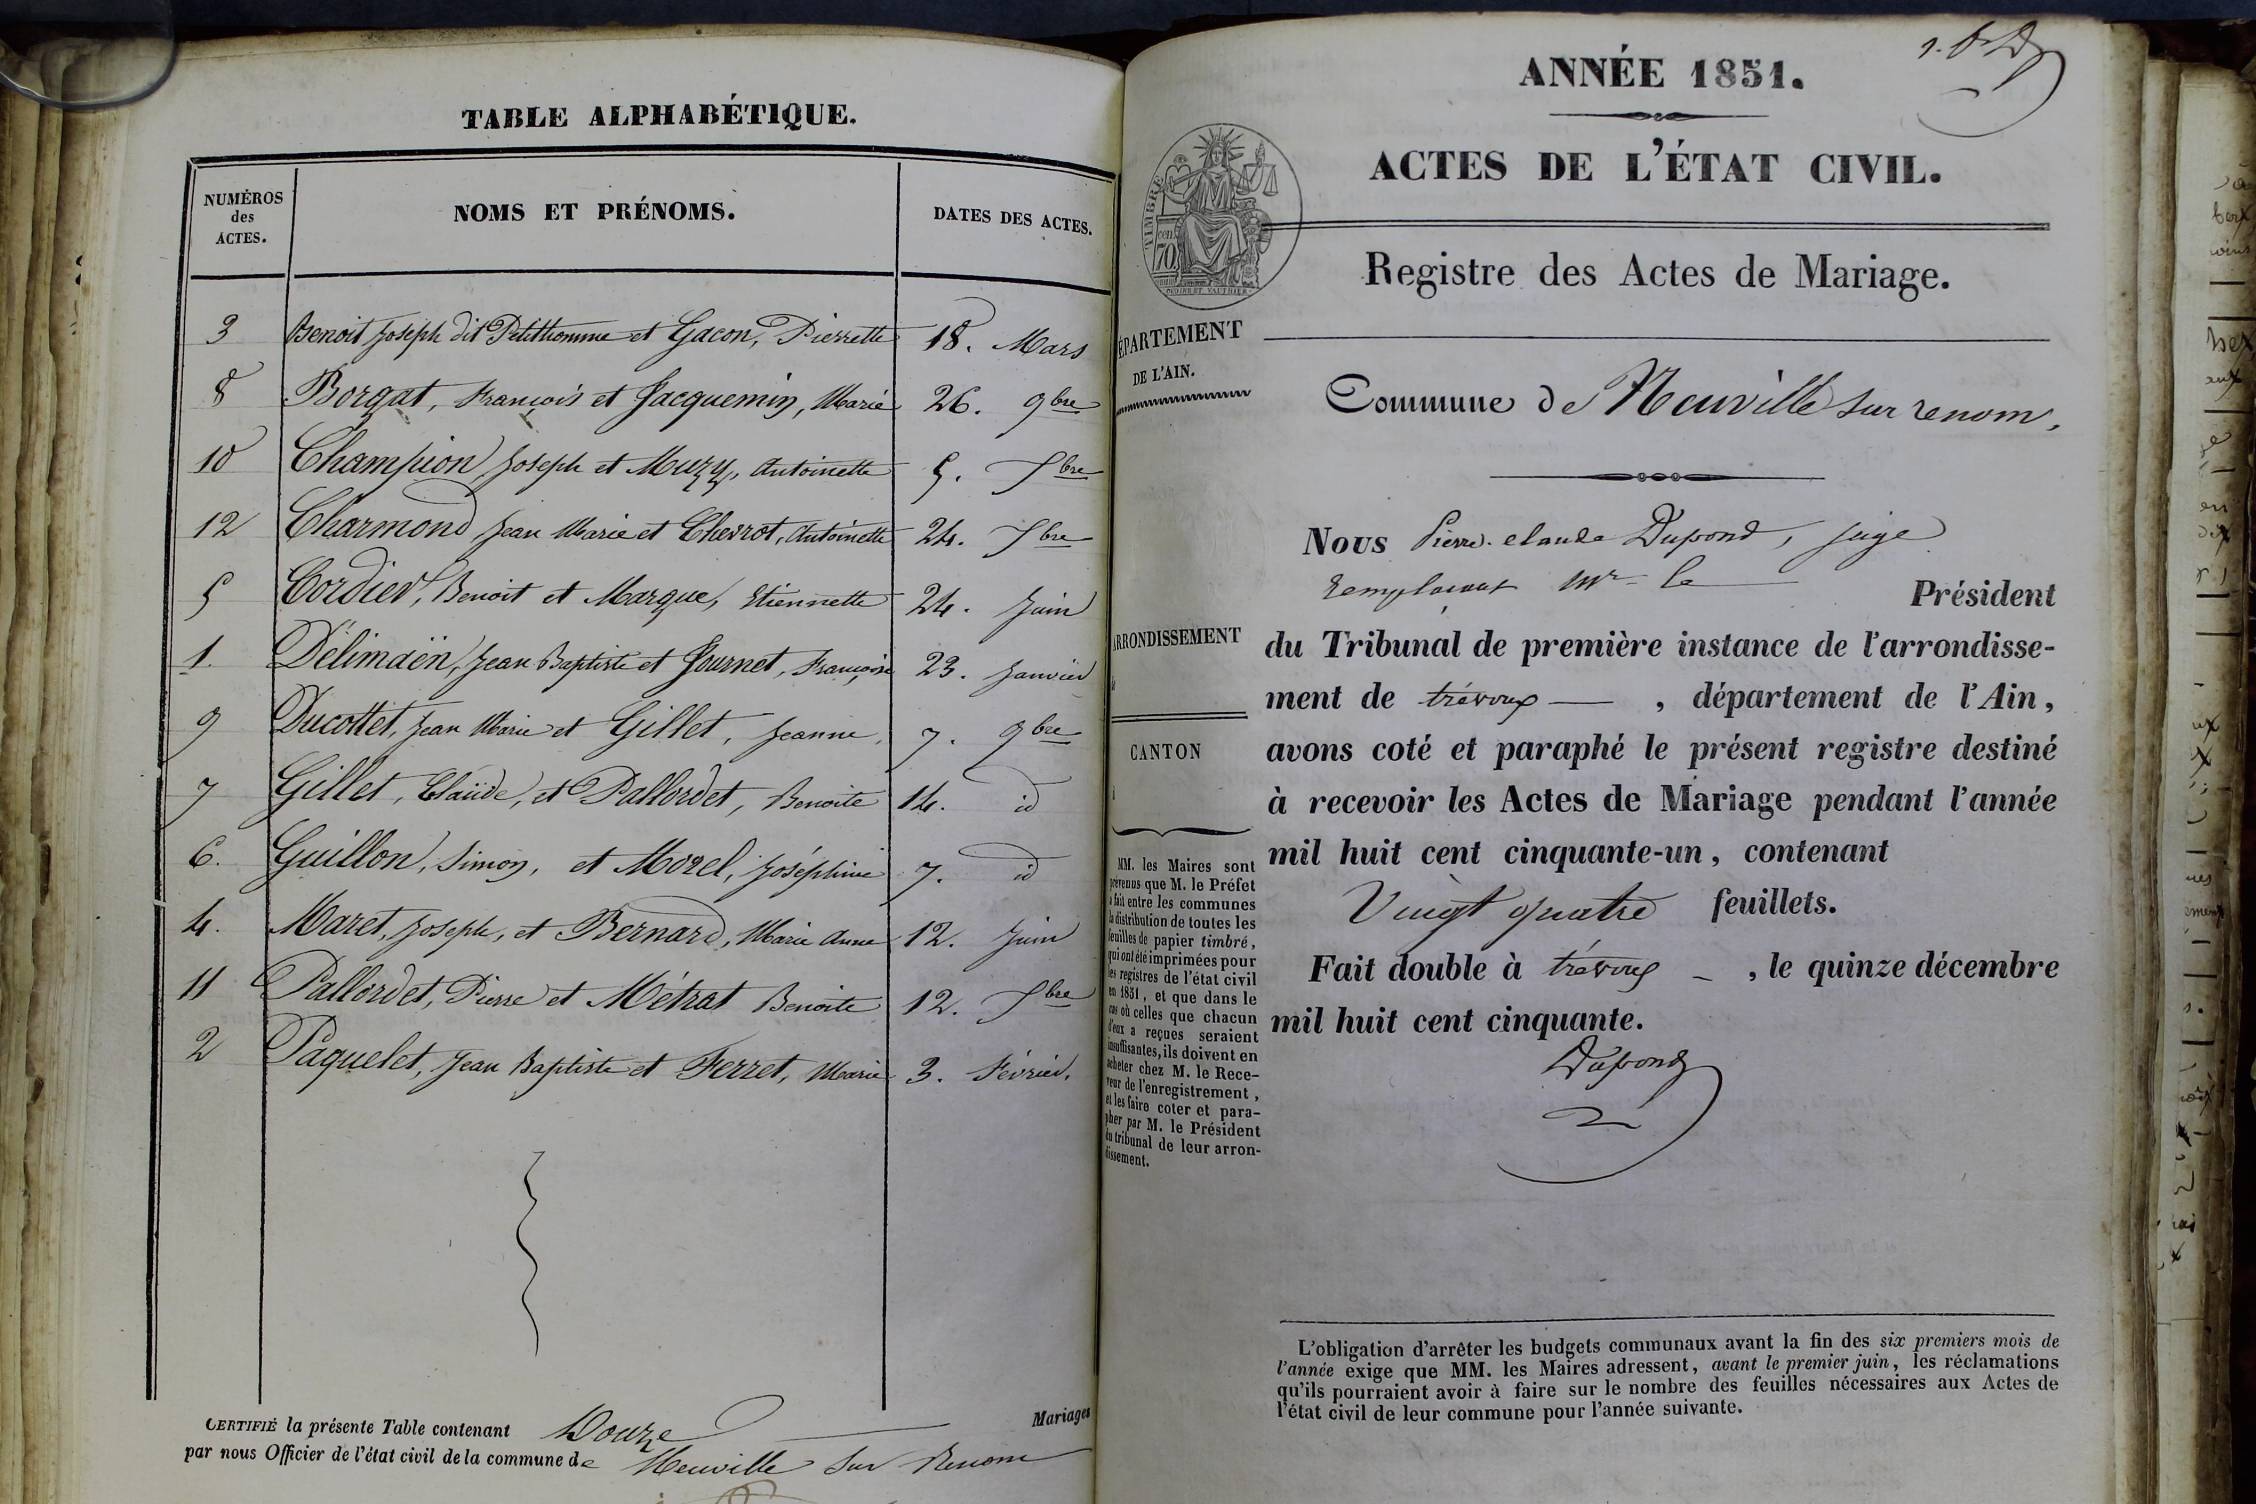 TABLE ALPHABÉTIQUE.
NUMÉROS des ACTES.
NOMS ET PRÉNOMS.
DATES DES ACTES.
3 Benoit Joseph dit Petithomme et Gacon, Pierrette 18. Mars
8 Borgat, François et Jacquemin, Marie 26. 9bre
10 Champion Joseph et Muzy, Antoinette 5. Xbre
12 Charmond Jean Marie et Chevrot, Antoinette 24. Xbre
5 Cordier, Benoit et Marque, Etiennette 24. Juin
1. Délimaën, Jean Baptiste et Journet, Françoise 23. Janvier
9 Ducottet, Jean Marie et Gillet, Jeanne, 7. 9bre
7 Gillet, Claude, et Pallordet, Benoite 14. id
6. Guillon, Simon, et Morel, Joséphine 7. id
4. Maret, Joseph, et Bernard, Marie Anne 12. Juin
11 Pallordet, Pierre et Métrat Benoite 12. Xbre
2 Paquelet, Jean Baptiste et Ferret, Marie 3. Février.
CERTIFIÉ la présente Table contenant Douze Mariages
par nous Officier de l'état civil de la commune de Neuville sur Renom
ANNÉE 1851.
ACTES DE L'ÉTAT CIVIL.
TIMBRE
70
Registre des Actes de Mariage.
DÉPARTEMENT
DE L'AIN.
Commune de Neuville sur renom,
Nous Pierre-claude Dupond, juge
remplaçant Mr le Président
ARRONDISSEMENT
du Tribunal de première instance de l'arrondisse-
ment de trévoux , département de l'Ain,
avons coté et paraphé le présent registre destiné
à recevoir les Actes de Mariage pendant l'année
mil huit cent cinquante-un, contenant
Vingt quatre feuillets.
Fait double à trévoux , le quinze décembre
mil huit cent cinquante.
Dupond
CANTON
MM. les Maires sont
prévenus que M. le Préfet
a fait entre les communes
la distribution de toutes les
feuilles de papier timbré,
qui ont été imprimées pour
les registres de l'état civil
en 1851, et que dans le
cas où celles que chacun
d'eux a reçues seraient
insuffisantes, ils doivent en
acheter chez M. le Rece-
veur de l'enregistrement,
et les faire coter et para-
pher par M. le Président
du tribunal de leur arron-
dissement.
L'obligation d'arrêter les budgets communaux avant la fin des six premiers mois de
l'année exige que MM. les Maires adressent, avant le premier juin, les réclamations
qu'ils pourraient avoir à faire sur le nombre des feuilles nécessaires aux Actes de
l'état civil de leur commune pour l'année suivante.